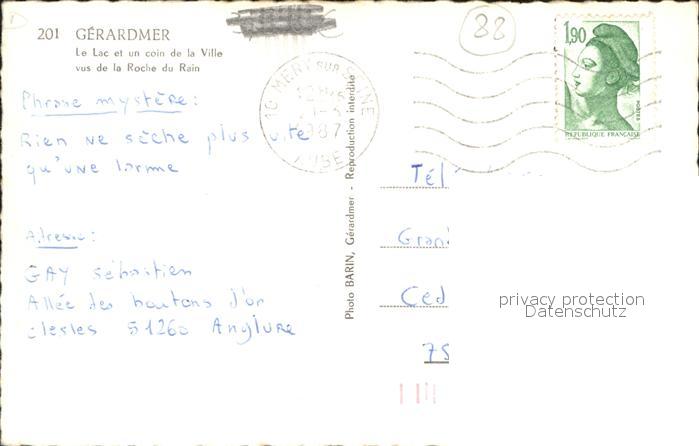 201 GÉRARDMER
Le Lac et un coin de la Ville
vus de la Roche du Rain
88
1,90
POSTES
REPUBLIQUE FRANÇAISE
10 MERY SUR SEINE
1987
AUBE
Phrase mystère :
Rien ne sèche plus vite
qu'une larme
Adresse :
GAY Sébastien
Allée des boutons d'or
clesles 51260 Anglure
Photo BARIN, Gérardmer - Reproduction interdite
Tél
Gran
Ced
75
privacy protection
Datenschutz